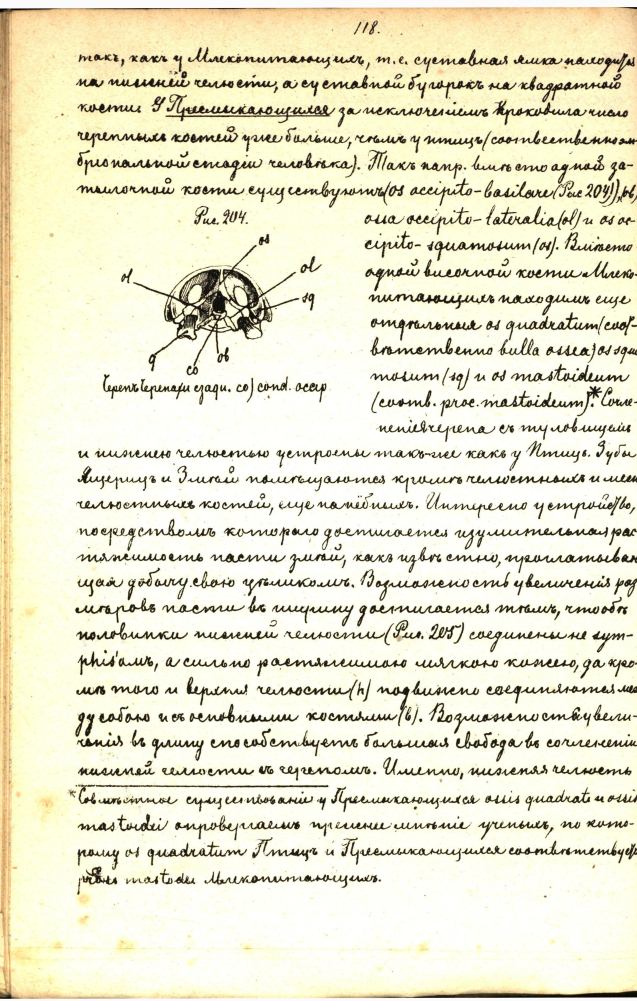 118.
такъ, какъ у Млекопитающихъ, т.е. суставная ямка находится
на нижней челюсти, а суставной бугорокъ на квадратной
кости. У Пресмыкающихся за исключеніемъ Крокодила число
черепныхъ костей уже больше, чѣмъ у птицъ (соотвественно эм-
бріональной стадіи человѣка). Такъ напр. вмѣсто одной за-
тылочной кости существуютъ (os occipito-basilare (Рис 204)), ob,
Рис. 204.
ossa occipito-lateralia (ol) и os oc-
cipito-squamosum (os). Вмѣсто
одной височной кости Млеко-
питающихъ находимъ еще
отдѣльныя os quadratum (соот-
вѣтственно bulla ossea) os squa
mosum (sq) и os mastoideum
(соотв. proc. mastoideum).* Сочле-
ненія черепа съ туловищемъ
os
ol
ol
sq
q
co
ob
Черепъ Черепахи сзади. co) cond. occip.
и нижнею челюстью устроены такъ-же какъ у Птицъ. Зубы
Ящерицъ и Змѣй помѣщаются кромѣ челюстныхъ и меж
челюстныхъ костей, еще на нёбныхъ. Интересно устройство,
посредствомъ котораго достигается изумительная рас
тяжимость пасти змѣй, какъ извѣстно, проглатываю
щая добычу свою цѣликомъ. Возможность увеличенія раз
мѣровъ пасти въ ширину достигается тѣмъ, что обѣ
половинки нижней челюсти (Рис. 205) соединены не sym-
phis'омъ, а сильно растяжимою мягкою кожею, да кро-
мѣ того и верхнія челюсти (h) подвижно соединяются меж
ду собою и съ основными костями (b). Возможности увели-
ченія въ длину способствуетъ большая свобода въ сочлененіи
нижней челюсти съ черепомъ. Именно, нижняя челюсть
* Совмѣстное существованіе у Пресмыкающихся ossis quadrati и ossis
mastoidei опровергаетъ прежнее мнѣніе ученыхъ, по кото-
рому os quadratum Птицъ и Пресмыкающихся соотвѣтствуетъ
mastodei Млекопитающихъ.